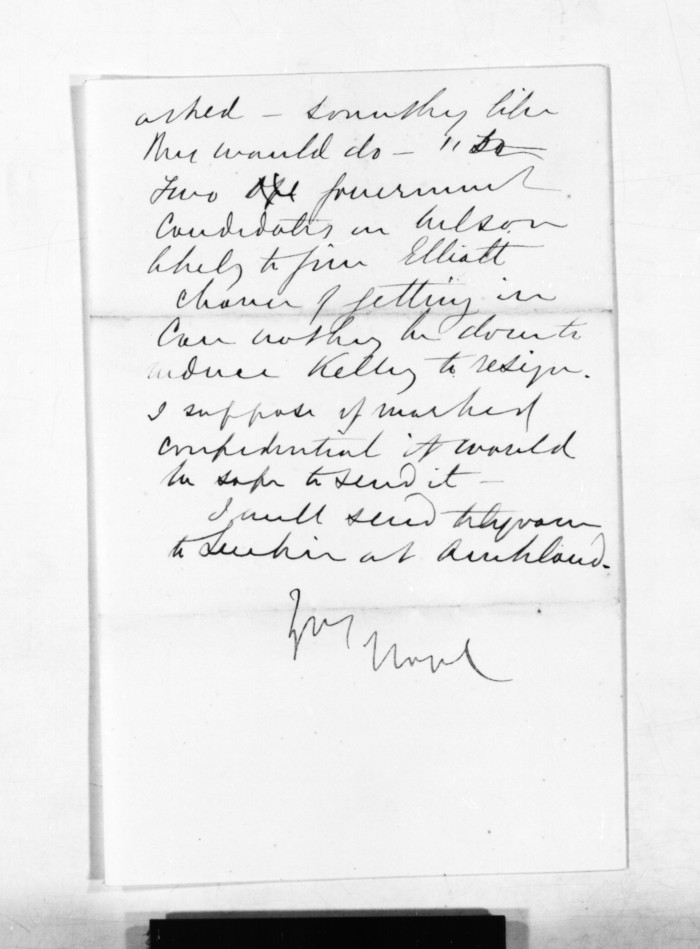 asked – something like
this would do – "
Two Government
Candidates in Nelson
likely to give Elliott
chance of getting in
Can nothing be done to
induce Kelling to resign.
I suppose if marked
confidential it would
be safe to send it –
I will send telegram
to Luckie at Auckland.
Yrs